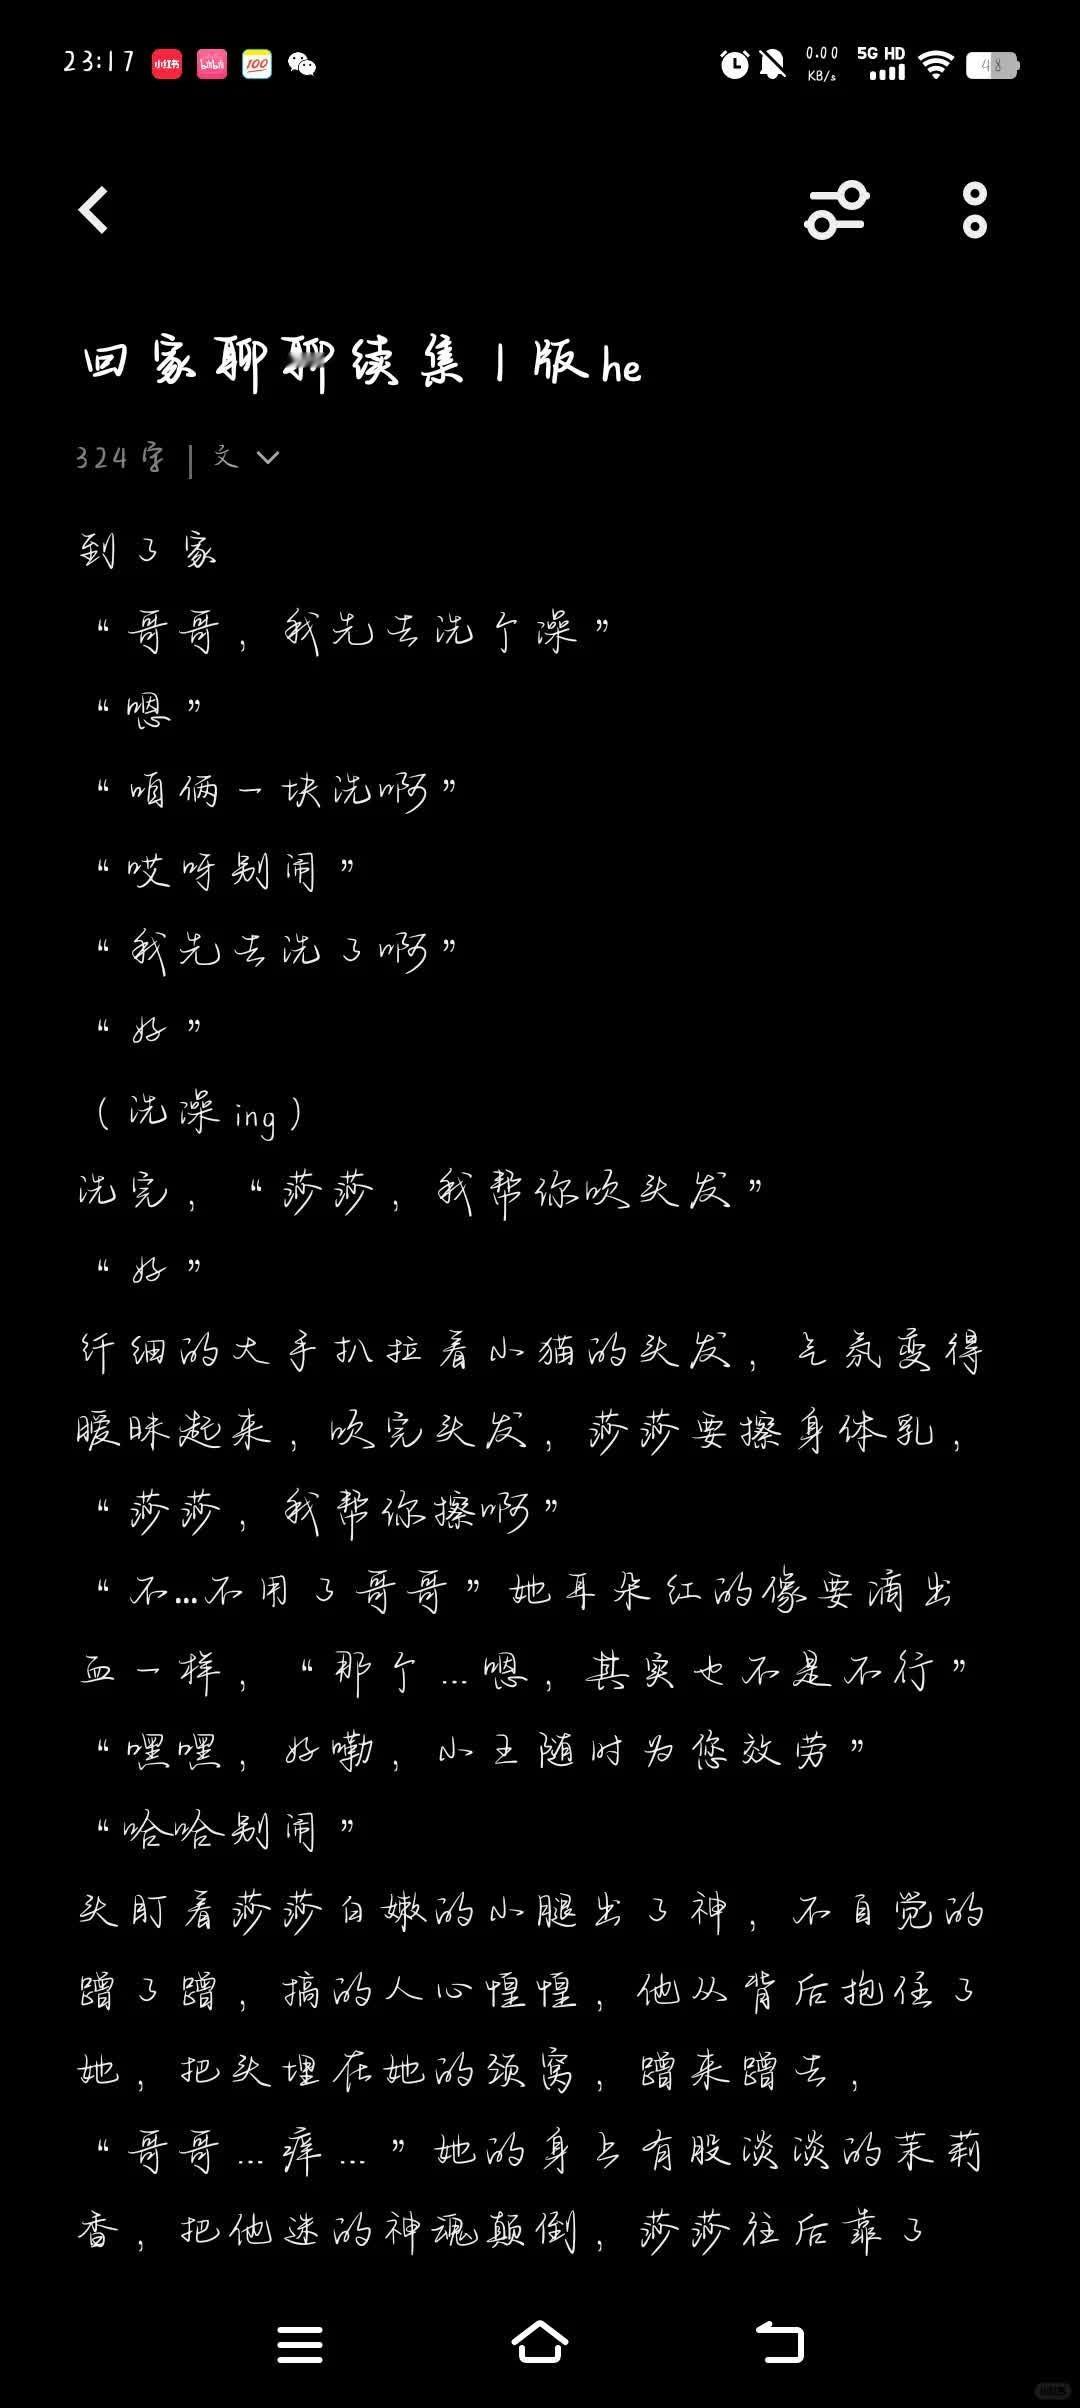 23:17 小红书 bilibili 100 0.00 KB/s 5G HD 48
回家聊聊续集1版he
324字 | 文
到了家
“哥哥，我先去洗个澡”
“嗯”
“咱俩一块洗啊”
“哎呀别闹”
“我先去洗了啊”
“好”
（洗澡ing）
洗完，“莎莎，我帮你吹头发”
“好”
纤细的大手扒拉着小猫的头发，气氛变得
暧昧起来，吹完头发，莎莎要擦身体乳，
“莎莎，我帮你擦啊”
“不...不用了哥哥”她耳朵红的像要滴出
血一样，“那个...嗯，其实也不是不行”
“嘿嘿，好嘞，小王随时为您效劳”
“哈哈别闹”
头盯着莎莎白嫩的小腿出了神，不自觉的
蹭了蹭，搞的人心惶惶，他从背后抱住了
她，把头埋在她的颈窝，蹭来蹭去，
“哥哥...痒...”她的身上有股淡淡的茉莉
香，把他迷的神魂颠倒，莎莎往后靠了